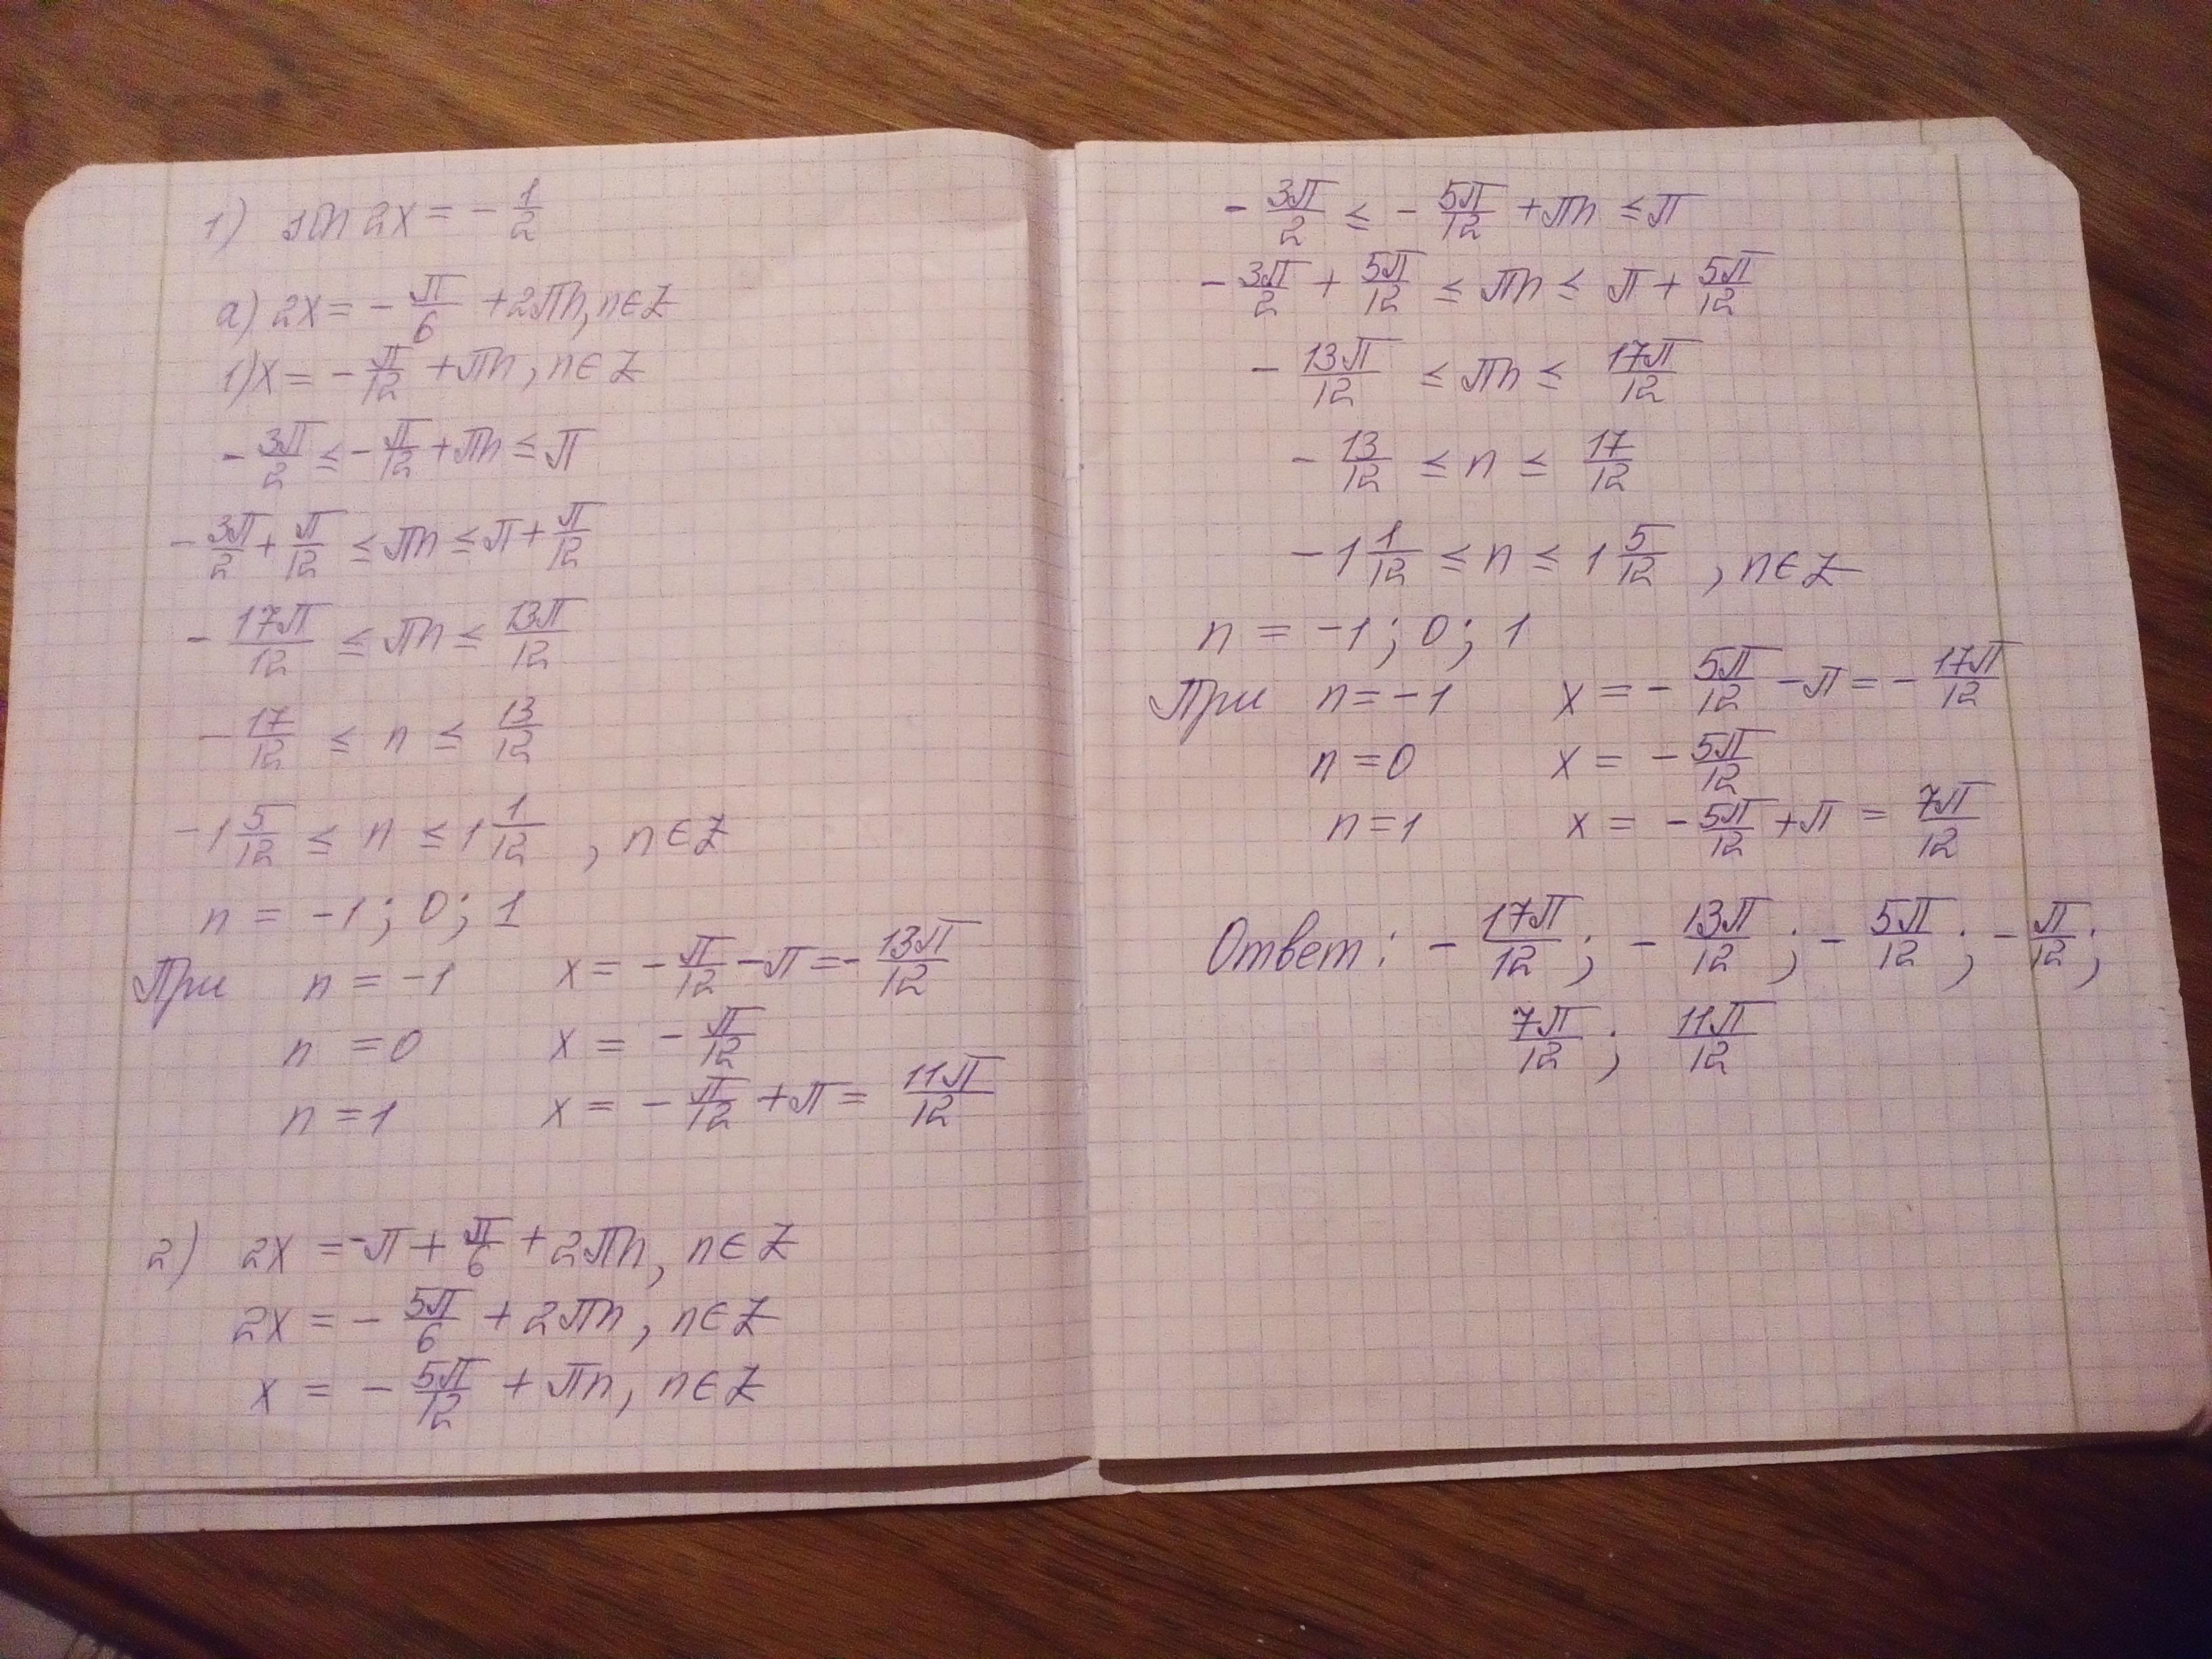 1) sin 2x = - 1/2
а) 2x = - π/6 + 2πn, n∈Z
1) x = - π/12 + πn, n∈Z
- 3π/2 ≤ - π/12 + πn ≤ π
- 3π/2 + π/12 ≤ πn ≤ π + π/12
- 17π/12 ≤ πn ≤ 13π/12
- 17/12 ≤ n ≤ 13/12
- 1 5/12 ≤ n ≤ 1 1/12 , n∈Z
n = -1; 0; 1
При n = -1 x = - π/12 - π = - 13π/12
n = 0 x = - π/12
n = 1 x = - π/12 + π = 11π/12
2) 2x = -π + π/6 + 2πn, n∈Z
2x = - 5π/6 + 2πn, n∈Z
x = - 5π/12 + πn, n∈Z
- 3π/2 ≤ - 5π/12 + πn ≤ π
- 3π/2 + 5π/12 ≤ πn ≤ π + 5π/12
- 13π/12 ≤ πn ≤ 17π/12
- 13/12 ≤ n ≤ 17/12
- 1 1/12 ≤ n ≤ 1 5/12 , n∈Z
n = -1; 0; 1
При n = -1 x = - 5π/12 - π = - 17π/12
n = 0 x = - 5π/12
n = 1 x = - 5π/12 + π = 7π/12
Ответ: - 17π/12; - 13π/12; - 5π/12; - π/12;
7π/12; 11π/12